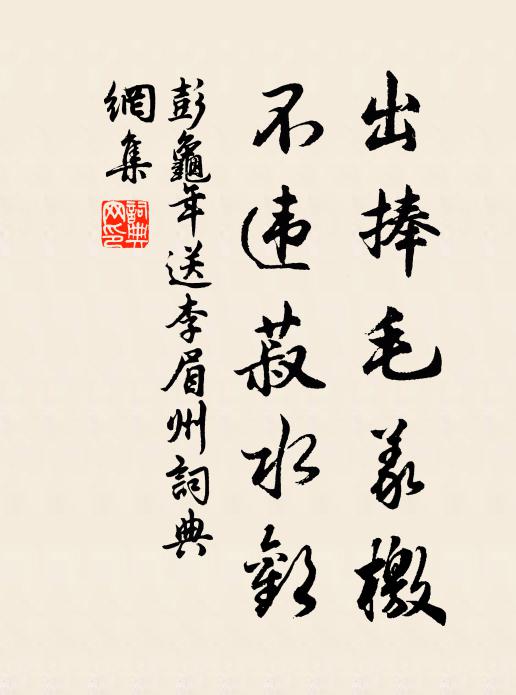 出捧毛义檄
不违菽水歡
彭龜年送李眉州詞典
網集
詞典網印